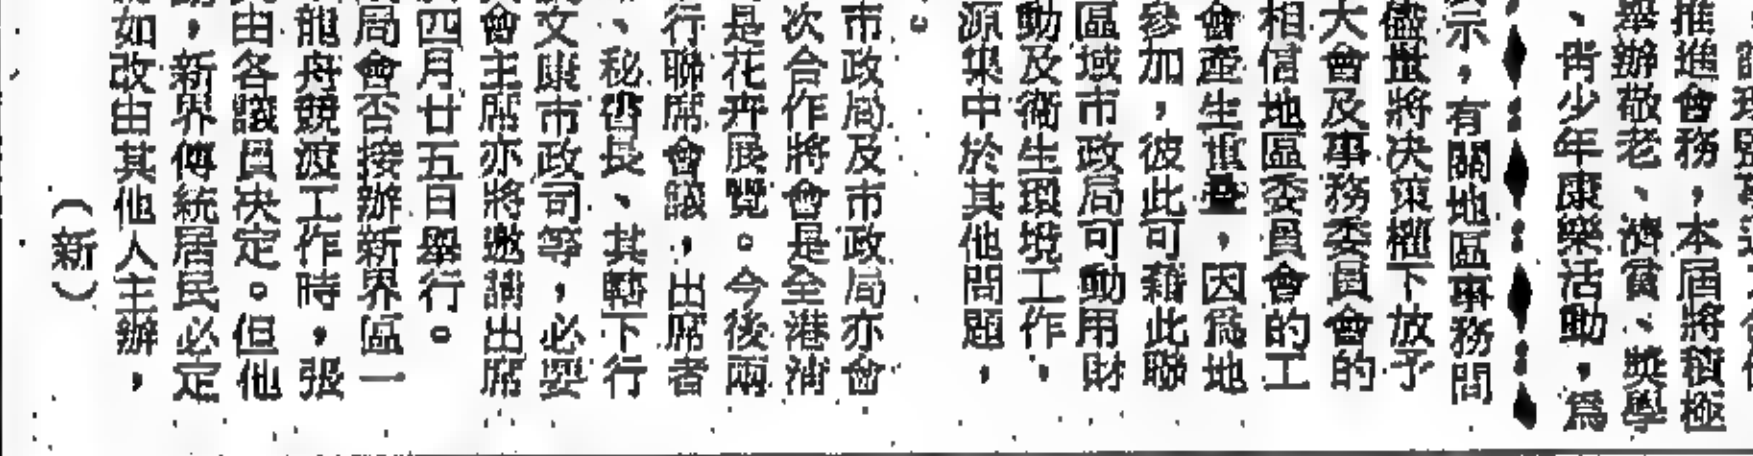 推進會務，本屆將積極
舉辦敬老、濟貧、獎學
、青少年康樂活動，爲
示，有關地區事務問
儘量將決策權下放予
大會及事務委員會的
相信地區委員會的工
會產生重疊，因爲地
參加，彼此可藉此聯
區域市政局可動用財
動及衞生環境工作，
源集中於其他問題，
。
市政局及市政局亦會
次合作將會是全港清
是花卉展覽。今後兩
行聯席會議，出席者
、秘書長、其轄下行
文康市政司等，必要
會主席亦將邀請出席
四月廿五日舉行。
局會否接辦新界區一
龍舟競渡工作時，張
由各議員決定。但他
，新界傳統居民必定
如改由其他人主辦，
（新）